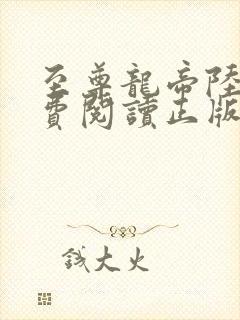 至尊龍帝陸
費閱讀正版
錢大火